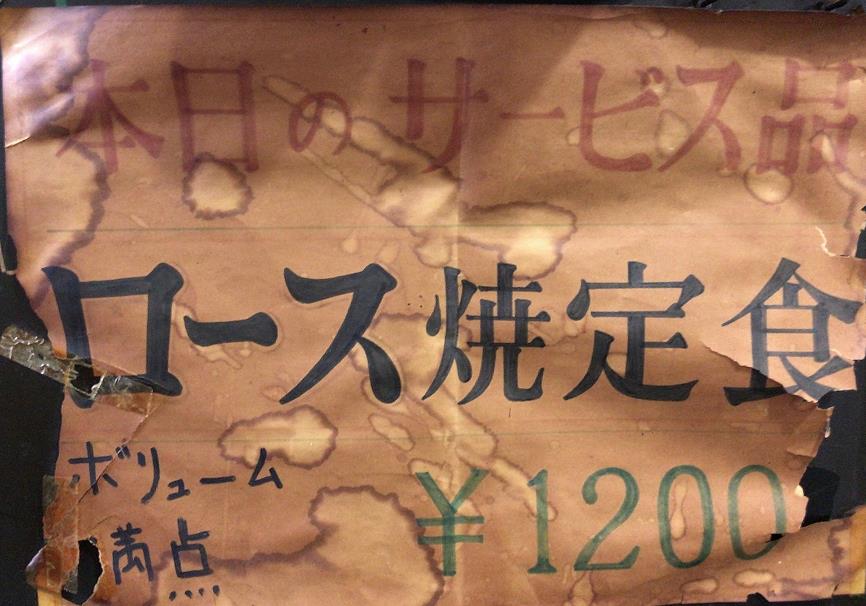 本日のサービス品
ロース焼定食
ボリューム
満点
¥1200